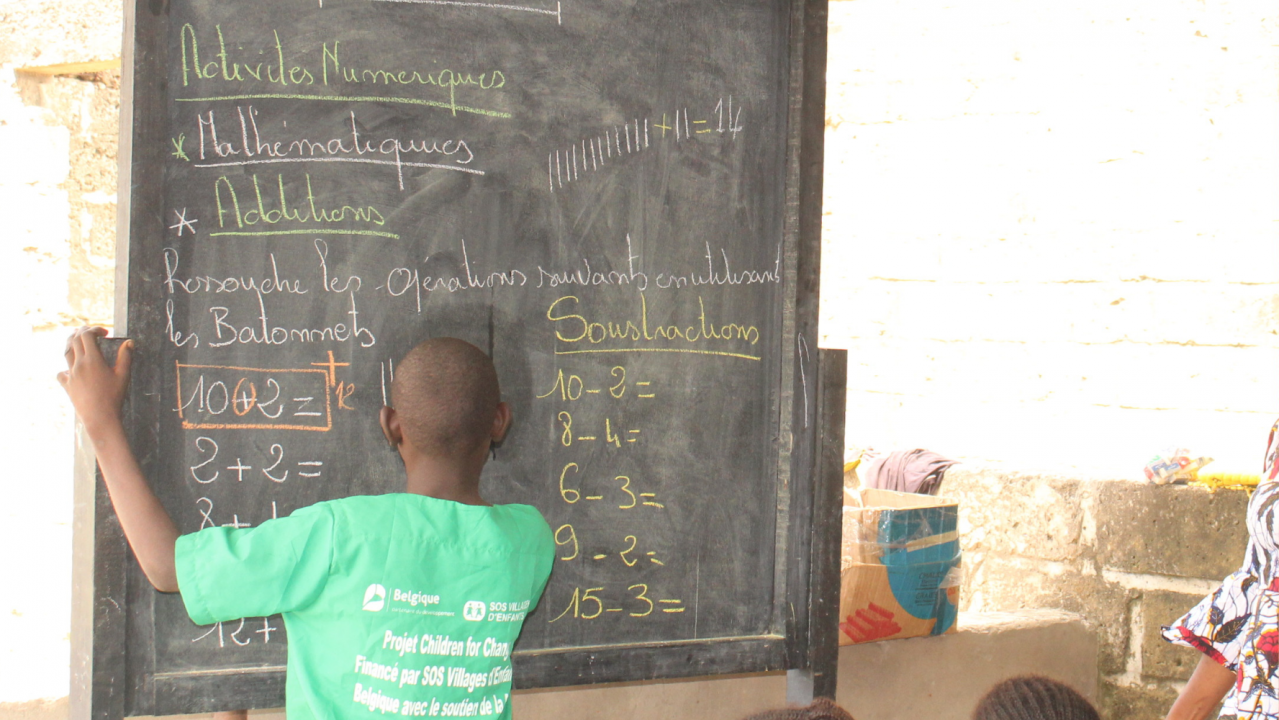 Activités Numeriques
* Mathématiques
+ 11 = 14
* Additions
les opérations suivants en utilisant
les Batonnets
Soustractions
10+2= 12
2+2=
8+
12+
10-2=
8-4=
6-3=
9-2=
15-3=
Belgique
SOS VILLAG
D'ENFANTS
Projet Children for Chan
Financé par SOS Villages d'Enfan
Belgique avec le soutien de la